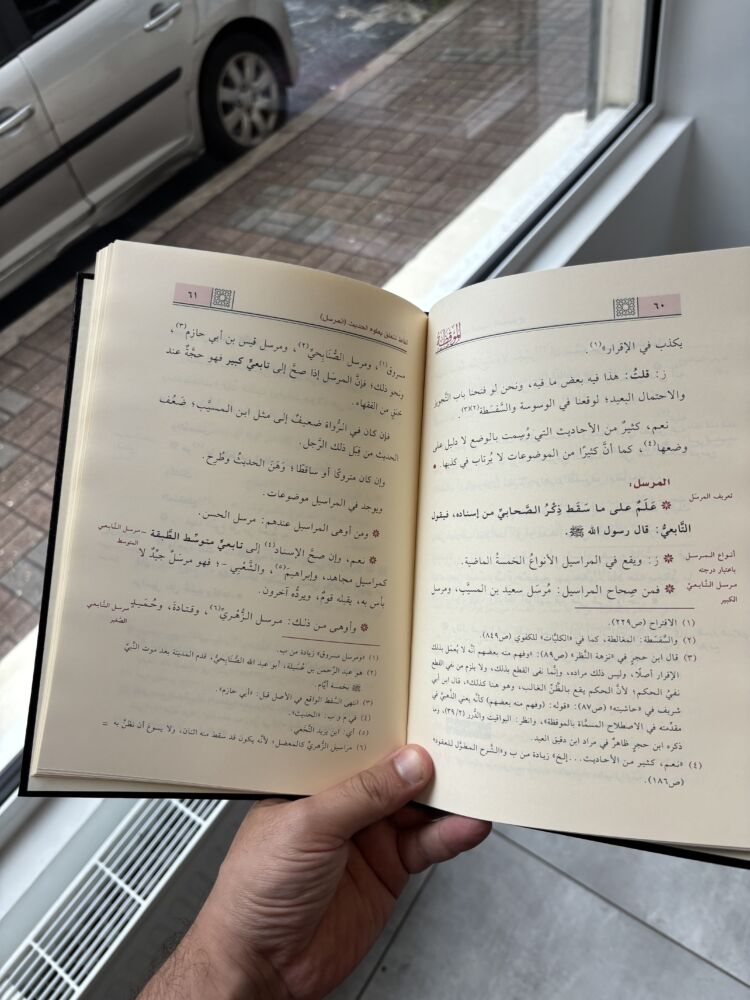 ٦٠
الموقظة
يكذب في الإقرار»(١).
ز: قلتُ: هذا فيه بعض ما فيه، ونحن لو فتحنا باب التَّجويز
والاحتمال البعيد؛ لوقعنا في الوسوسة والسَّفسَطة(٢)(٣).
نعم، كثيرٌ من الأحاديث التي وُسِمت بالوضع لا دليل على
وضعها(٤)، كما أنَّ كثيرًا من الموضوعات لا يُرتاب في كذبها.
المرسل:
تعريف المرسل
عَلَمٌ على ما سَقَط ذِكْرُ الصَّحابيِّ من إسناده، فيقول
التَّابعيُّ: قال رسول الله ﷺ.
أنواع المرسل
باعتبار درجته
ز: ويقع في المراسيل الأنواعُ الخمسةُ الماضية.
مرسل التَّابعيِّ
الكبير
فمن صِحاح المراسيل: مُرسَل سعيد بن المسيَّب، ومرسل
(١) الاقتراح (ص٢٢٩).
(٢) والسَّفسَطة: المغالطة، كما في «الكليَّات» للكفوي (ص٨٤٩).
(٣) قال ابن حجرٍ في «نزهة النَّظر» (ص٨٩): «وفهم منه بعضهم أنَّه لا يُعمَل بذلك
الإقرار أصلًا، وليس ذلك مراده، وإنَّما نفى القطع بذلك، ولا يلزم من نفي القطع
نفيُ الحكم؛ لأنَّ الحكم يقع بالظَّنِّ الغالب، وهو هنا كذلك»، قال ابن أبي
شريف في «حاشيته» (ص٨٧): «قوله: (وفهم منه بعضهم) كأنَّه يعني الذَّهبيَّ في
مقدِّمته في الاصطلاح المسمَّاة بالموقظة»، وانظر: اليواقيت والدُّرر (٣٩/٢)، وما
ذكره ابن حجرٍ ظاهرٌ في مراد ابن دقيق العيد.
(٤) «نعم، كثير من الأحاديث...إلخ» زيادة من ب و«الشَّرح المطوَّل للعقود»
(ص١٨٦).
٦١
ألفاظ تتعلق بعلوم الحديث (المرسل)
مسروق(١)، ومرسل الصُّنَابِحيِّ(٢)، ومرسل قيس بن أبي حازم(٣)،
ونحو ذلك؛ فإنَّ المرسَل إذا صحَّ إلى تابعيٍّ كبير فهو حجَّةٌ عند
خلقٍ من الفقهاء.
فإن كان في الرُّواة ضعيفٌ إلى مثل ابن المسيَّب؛ ضَعُف
الحديث من قِبَل ذلك الرَّجل.
وإن كان متروكًا أو ساقطًا؛ وَهَنَ الحديثُ وطُرِح.
ويوجد في المراسيل موضوعات.
ومن أوهى المراسيل عندهم: مرسل الحسن.
مرسل التَّابعي
المتوسط
نعم، وإن صحَّ الإسناد(٤) إلى تابعيٍّ متوسّط الطَّبقة -
كمراسيل مجاهد، وإبراهيم(٥)، والشَّعْبي -؛ فهو مرسَلٌ جيِّدٌ لا
بأس به، يقبله قومٌ، ويردُّه آخرون.
مرسل التَّابعي
الصَّغير
وأوهى من ذلك: مرسل الزُّهريِّ(٦)، وقتادة، وحُمَيدٍ
(١) «ومرسل مسروق» زيادة من ب.
(٢) هو عبد الرَّحمن بن عُسَيلة، أبو عبد الله الصُّنابِحيُّ، قدم المدينة بعد موت النَّبيِّ
ﷺ بخمسة أيَّام.
(٣) انتهى السَّقط الواقع في الأصل قبل: «أبي حازم».
(٤) في م و ب: «الحديث».
(٥) أي: ابن يزيد النَّخَعي
(٦) مراسيل الزُّهريِّ كالمعضل» لأنَّه يكون قد سقط منه اثنان، ولا يسوغ أن نظنَّ به =